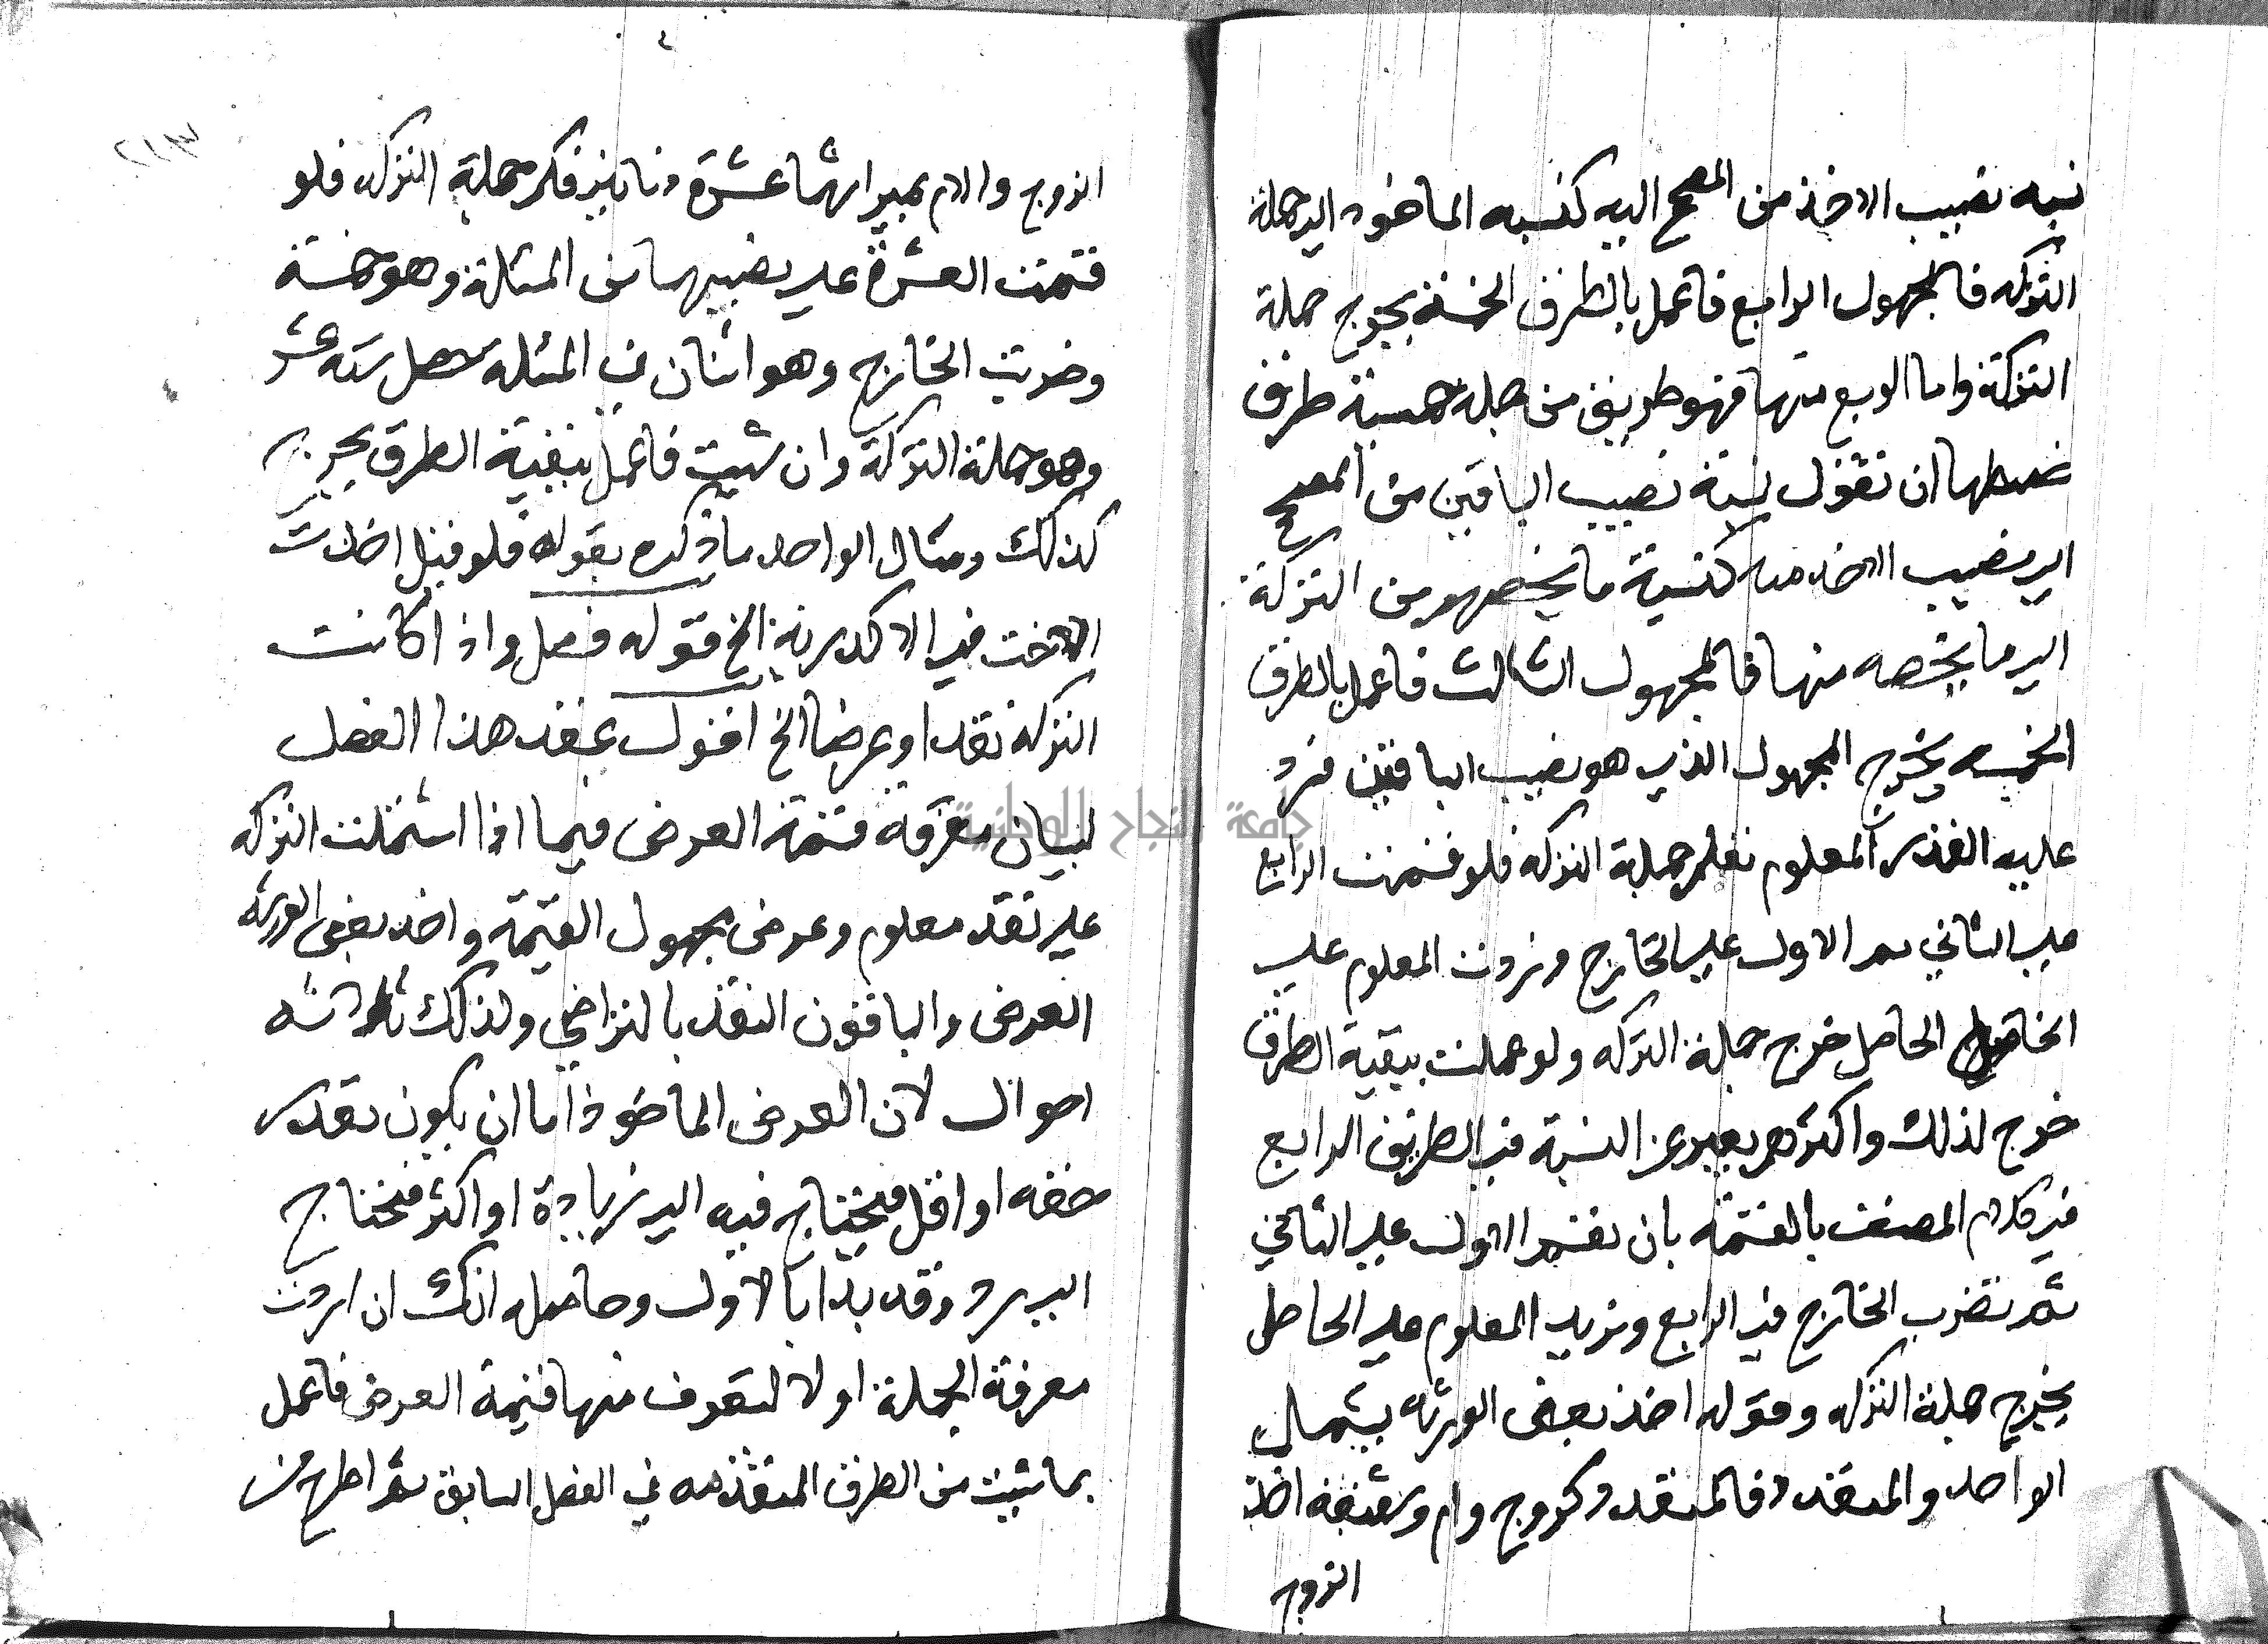 نسبه نصيب الاخذ من المصحح اليه كنسبه الماخوذ الى جملة
التركه فالمجهول الرابع فاعمل بالطرق الخمسة يخرج جملة
التركة واما الربع منها فهو طريق من جملة خمسة طرق
ضبطها ان تقول نسبة نصيب الباقين من المصحح
الى نصيب الاخذ منه كنسبة ما يخصهم من التركة
الى ما يخصه منها فالمجهول الثالث فاعمل بالطرق
الخمسه يخرج المجهول الذي هو نصيب الباقين فزد
عليه القدر المعلوم تعلم جملة التركه فلو قسمت الرابع
على الثاني ثم الاول على الخارج وزدت المعلوم على
الحاصل خرج جملة التركه ولو عملت ببقية الطرق
خرج لذلك واكثرهم يعبر عن النسبة في الطريق الرابع
في كلام المصنف بالقسمة بان تقسم الاول على الثاني
ثم تضرب الخارج في الرابع وتزيد المعلوم على الحاصل
يخرج جملة التركه وقوله اخذ بعض الورثه يشمل
الواحد والمتعدد فالمتعدد كزوج وام وشقيقه اخذ
الزوج
الزوج والام بميراثهما عشرة دنانير فكم جملة التركه فلو
قسمت العشرة على نصيبهما من المسئلة وهو خمسة
وضربت الخارج وهو اثنان في المسئله حصل سته عشر
وهو جملة التركة وان شيت فاعمل ببقية الطرق يخرج
كذلك ومثال الواحد ما ذكره بقوله فلو قيل اخذت
الاخت في الاكدرية الخ قوله فصل واذا كانت
التركه نقدا وعرضا الخ اقول عقد هذا الفصل
لبيان معرفة قسمة العرض فيما اذا اشتملت التركه
على نقد معلوم وعرض مجهول القيمة واخذ بعض الورثه
العرض والباقون النقد بالتراضي ولذلك ثلاثه
احوال لان العرض الماخوذ اما ان يكون بقدر
حقه او اقل فيحتاج فيه الى زيادة او اكثر فيحتاج
الى رد وقد بدا بالاول وحاصله انك ان اردت
معرفة الجملة اولا لتعرف منها قيمة العرض فاعمل
بما شيت من الطرق المتقدمه في الفصل السابق ثم اطرح من
جامعة النجاح الوطنية